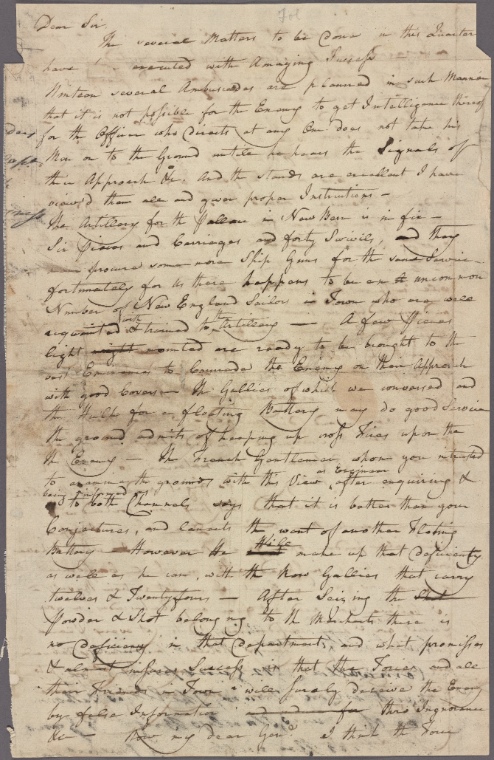 Dear Sir,
The several Matters to be Done in this Quarter
have executed with Amazing Success
several Ambuscades are planned in such Manner
that it is not possible for the Enemy to get Intelligence thereof
for the Officer who Directs at any One does not take his
Men on to the Ground untill he hears the Signals of
their Approach &c. And the stands are excellent I have
view'd them all and given proper Instructions —
The Artillery for the in New Bern is in fine —
Six Pieces and Carriages and forty Swivels, and they
procure some more Ship Guns for the same Service
fortunately for us there happens to be an uncommon
Number of New England Sailors in Town who are well
acquainted with & trained to Artillery — A few Pieces
light mounted are ready to be brought to the
to the Enemy on their Approach
with good Cover — the Gallies of which we conversed and
the Hulk for a floating Battery may do good Service
the ground admits of keeping up cross Fires upon the
the Enemy — The French Gentleman, whom you intrusted
to examine the ground, with this View, as Engineer after enquiring &
being informed to both Channels says that it is better than your
Conjectures, and laments the want of another Floating
Battery — However He will make up that Deficiency
as well as he can, with the Row Gallies that carry
twelves & Twenty fours — After Seizing the
Powder & Shot belonging to the Merchants there is
no Deficiency in that Department, and what promises
Success is that the Tories and all
their Friends in Town will surely deceive the Enemy
by false Information this Ingnorance
&c — Now my dear I think the Tory